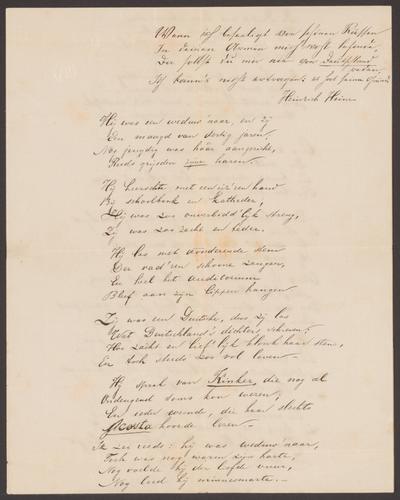 Wenn ich beseeligt von schönen Küssen
In deinen Armen mich wohl befinde,
Dann sollst du mir nie von Deutschland
reden,
Ich kann's nicht vertragen: es hat seine Gründe
Heinrich Heine
Hij was een weduw'naar, en zij
Een maagd van dertig jaren,
Nog jeugdig was háár aangezicht,
Reeds grijsden zijne haren. –
Hij heerschte met een ijz'ren hand
Bij schoolbank en katheder,
Hij was zoo onverbidd'lijk streng,
Zij was zoo zacht en teder.
Hij las met dond'rende stem
Der vad'ren schoone zangen,
En heel het auditorium
Bleef aan zijn lippen hangen
Zij was een Duitsche, dus zij las
Wat Deutschland's dichters schreven;
Hoe zacht en lief'lijk klonk haar stem,
En toch steeds zoo vol leven –
Hij sprak van Kinker, die nog al
Ondeugend soms kon wezen,
En ieder weende, die haar slechts
Acosta hoorde lezen. –
Ik zei reeds: hij was weduw'naar,
Toch was nog warm zijn harte,
Nog voelde hij der liefde vuur,
Nog leed hij minnesmarte. –